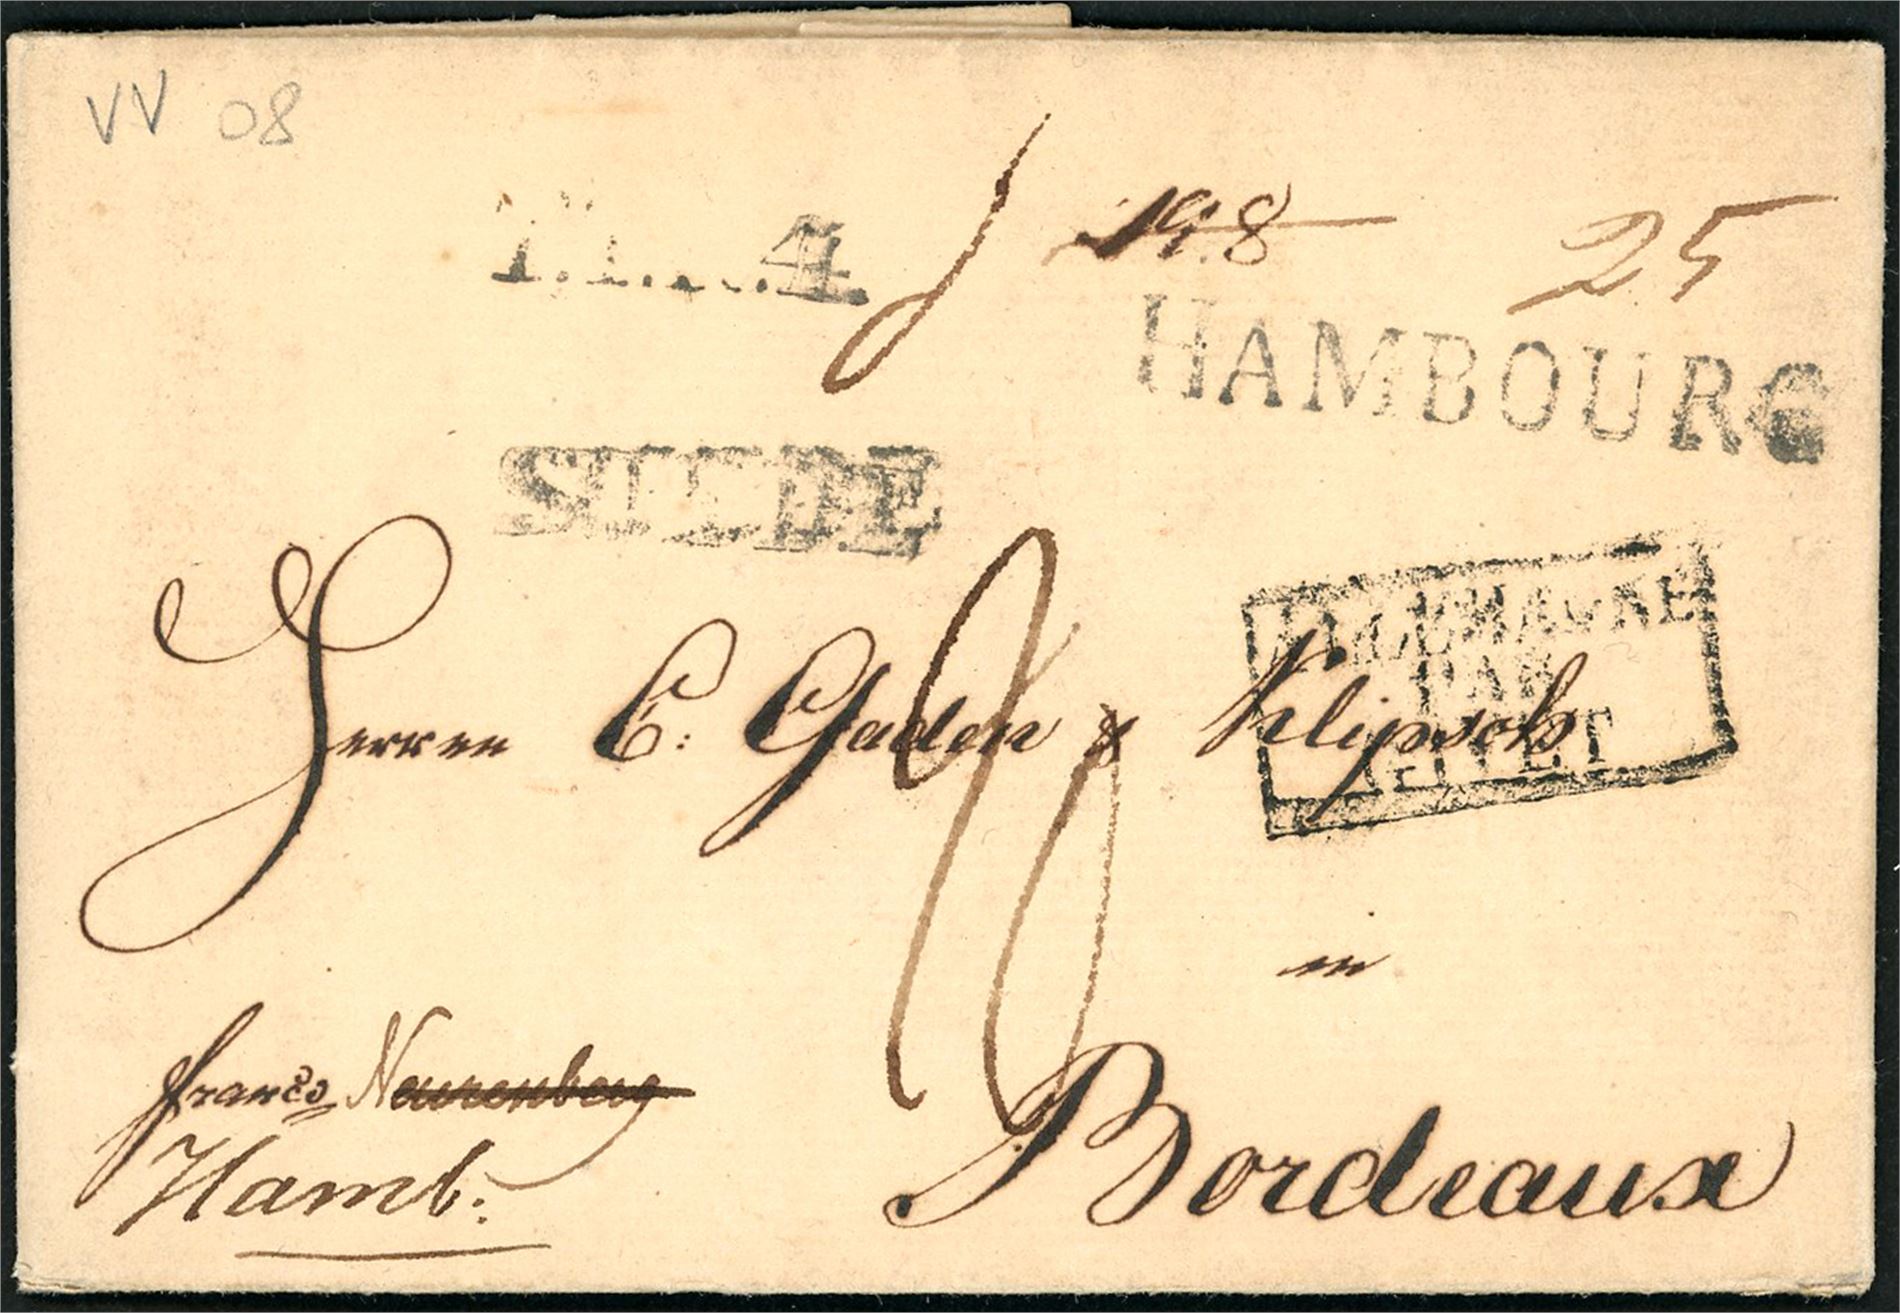 VV 08
198
25
T.T.R.4.
HAMBOURG
SUEDE
ALLEMAGNE
PAR
GIVET.
Herren C: Gaden & Klipsch
in
franco Neurenberg
Hamb:
Bordeaux